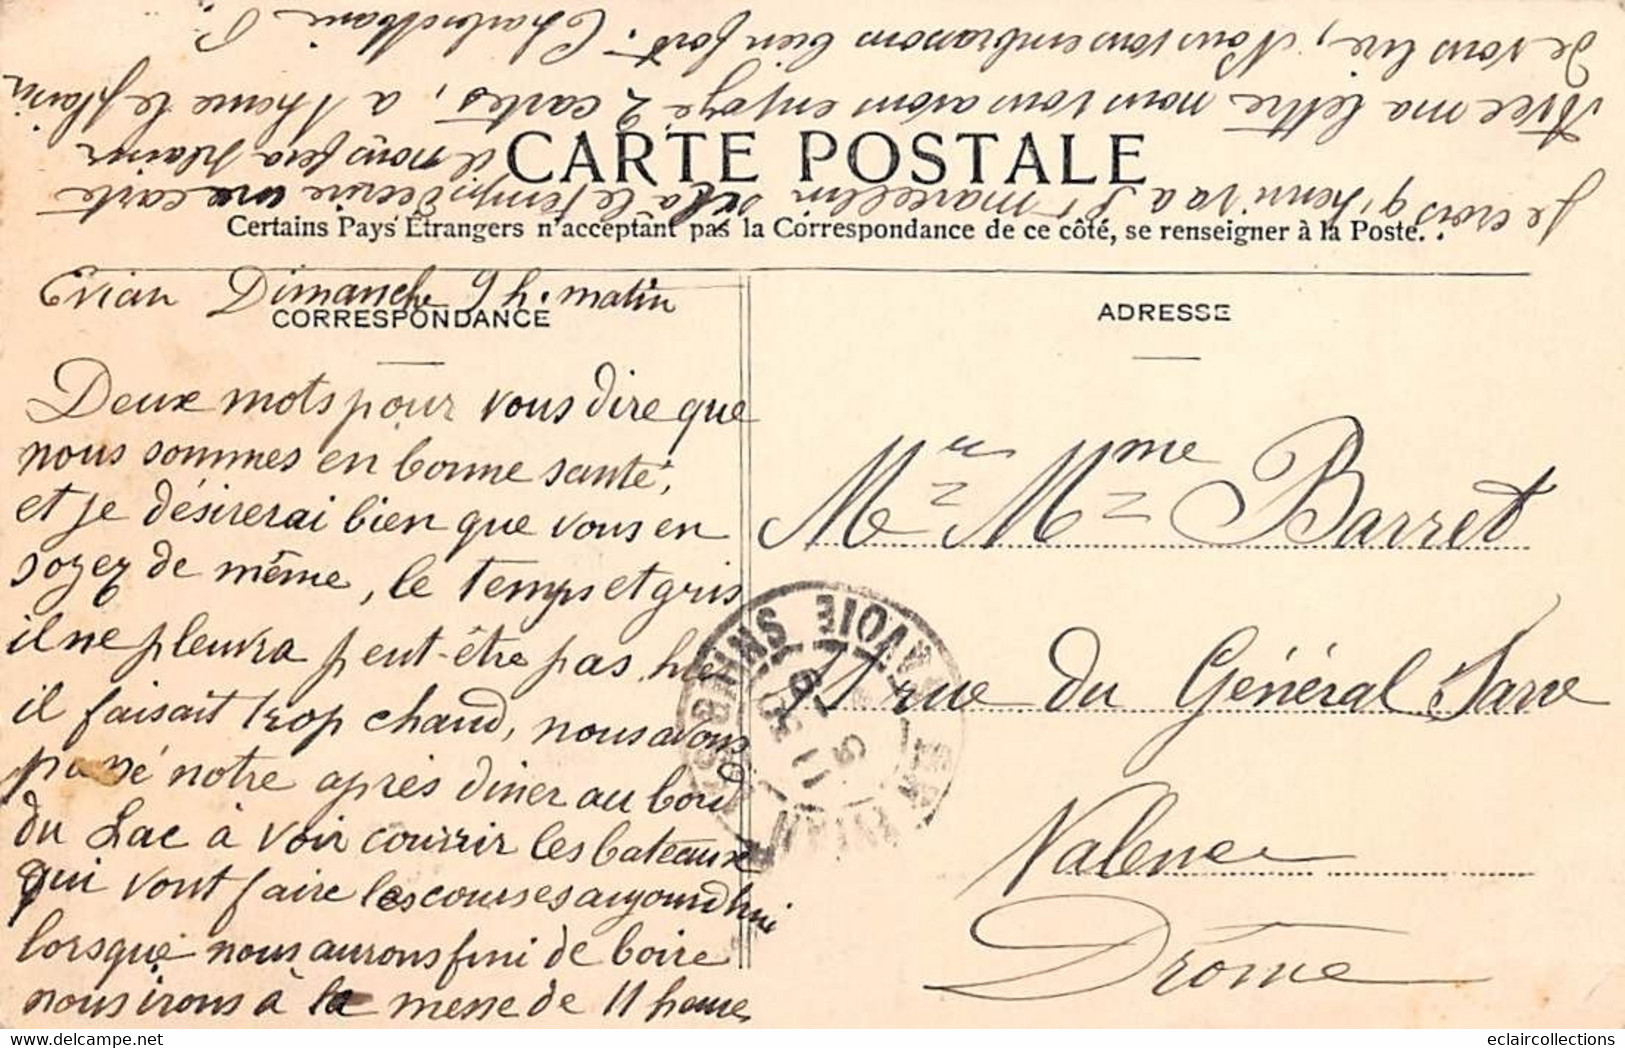 CARTE POSTALE
Certains Pays Étrangers n'acceptant pas la Correspondance de ce côté, se renseigner à la Poste.
Evian Dimanche 9 h. matin
CORRESPONDANCE
Deux mots pour vous dire que
nous sommes en bonne santé,
et je désirerai bien que vous en
soyez de même, le temps et gris
il ne pleuvra peut-être pas, hie
il faisait trop chaud, nous avons
passé notre après diner au bord
du Lac à voir courrir les bateaux
qui vont faire les courses aujourd'hui
lorsque nous aurons fini de boire
nous irons à la messe de 11 heure
Je crois q, henri va a St marcellin s'il a le temps d'ecrire une carte
il nous fera plaisir
Avec ma lettre nous vous avons envoyé 2 cartes, a 1 heure le plaisir
de vous lire, Nous vous embrassons bien fort.
ADRESSE
Mr Mme Barret
rue du Général Sarre
Valence
Drôme
EVIAN LES BAINS
SAVOIE
eclaircollections